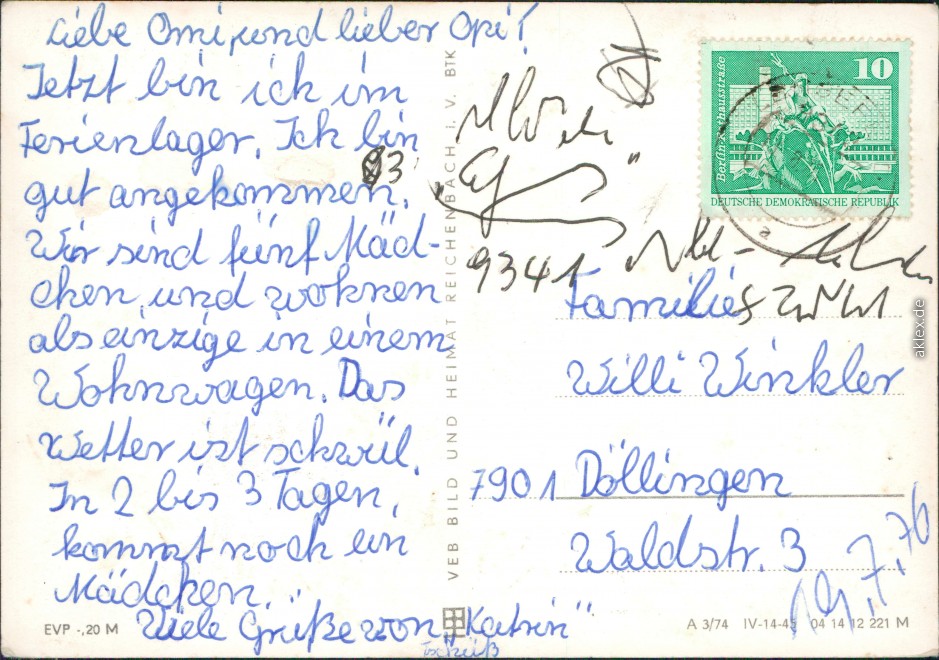 Liebe Omi, und lieber Opi!
Jetzt bin ich im
Ferienlager. Ich bin
gut angekommen.
Wir sind fünf Mäd-
chen, und wohnen
als einzige in einem
Wohnwagen. Das
Wetter ist schwül.
In 2 bis 3 Tagen,
kommt noch ein
Mädchen.
Viele Grüße von "Katrin"
Tschüß
EVP -,20 M
VEB BILD UND HEIMAT REICHENBACH I. V. BTK
93
9341
10
Berlin-Rathausstraße
DEUTSCHE DEMOKRATISCHE REPUBLIK
Familie
Willi Winkler
7901 Döllingen
Waldstr. 3
19.7.76
A 3/74 IV-14-45 04 14 12 221 M
aklex.de